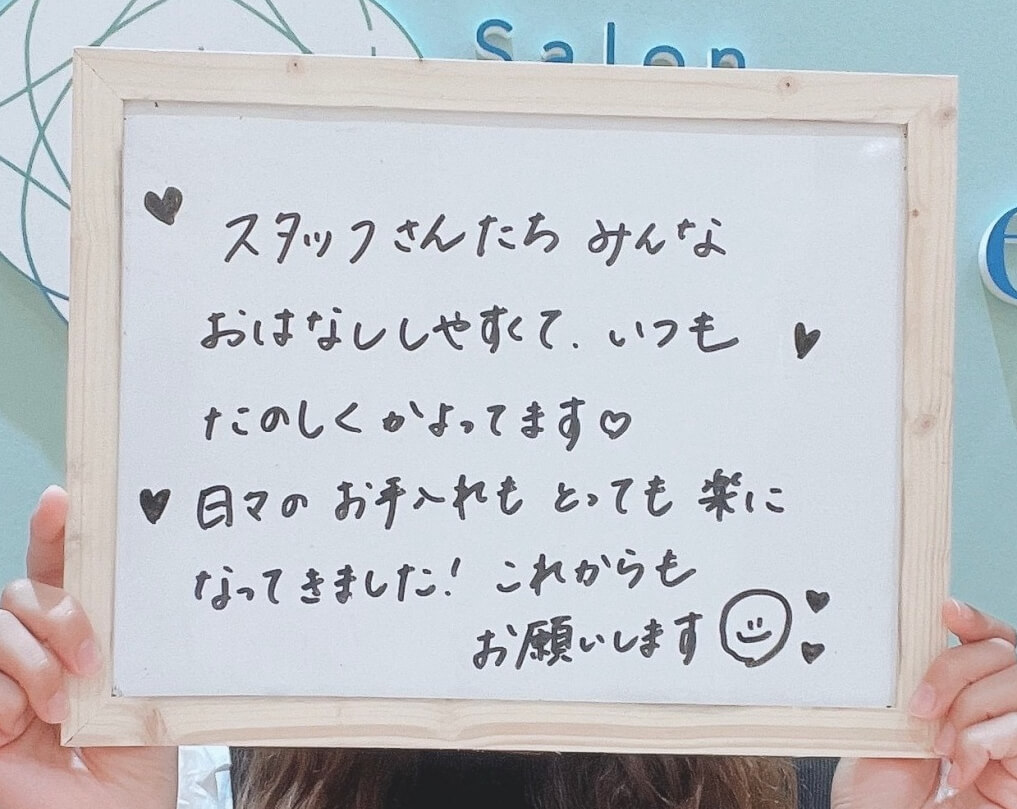 Salon
e
スタッフさんたち みんな
おはなししやすくて、いつも
たのしくかよってます♡
日々の お手入れも とっても 楽に
なってきました! これからも
お願いします